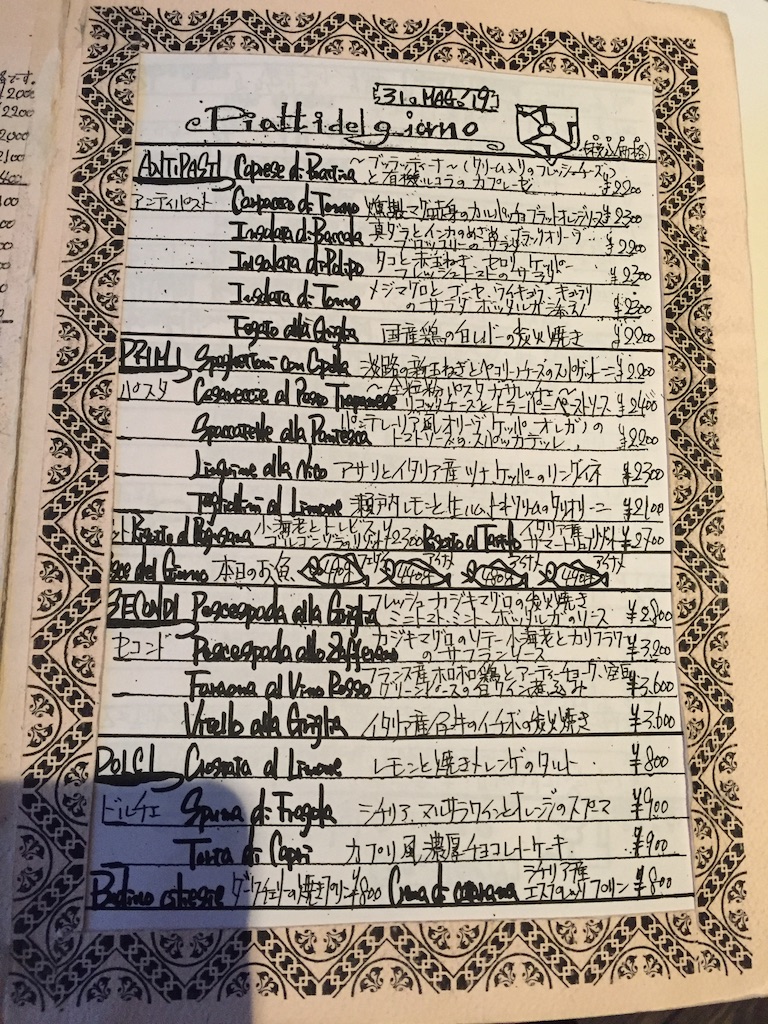 31. MAG. '19
Piatti del giorno
(税込価格)
ANTIPASTI Caprese di Buratina ～ブッラティーナ～(クリーム入りのフレッシュチーズ)
と有機ルコラのカプレーゼ ¥2200
アンティパスト Carpaccio di Tonno 燻製マグロ赤身のカルパッチョ ブラッドオレンジソース ¥2300
Insalata di Baccala 真ダラとインカのめざめ、ブラックオリーブ
ブロッコリーのサラダ ¥2200
Insalata di Polipo タコと赤玉ねぎ、セロリ、ケッパー
フレッシュトマトのサラダ ¥2300
Insalata di Tonno メジマグロとゴーヤ、ウイキョウ、キュウリ
のサラダ ボッタルガ ¥2300
Fegato alla Griglia 国産鶏の白レバーの炭火焼き ¥2200
PRIMI Spaghettoni con Cipolla 淡路の新玉ねぎとペコリーノチーズのスパゲットーニ ¥2200
パスタ Casarecce al Pesto Trapanese ～全粒粉パスタ カサレッチェ～
リコッタチーズとトラーパニペーストソース ¥2400
Spaccatelle alla Pantesca パンテレーリア風 オリーブ、ケッパー、オレガノの
トマトソースのスパッカテッレ ¥2200
Linguine alla Nico アサリとイタリア産ツナ、ケッパーのリングイネ ¥2300
Tagliolini al Limone 瀬戸内レモンと生ハム、クリームのタリオリーニ ¥2100
Risotto al 小海老とトレビスの
ゴルゴンゾーラのリゾット ¥2300 Risotto al Tartufo イタリア産
サマートリュフのリゾット ¥2700
del Giorno 本日のお魚 440g 440g アイナメ 480g アイナメ 440g アイナメ
SECONDI Pescespada alla Griglia フレッシュカジキマグロの炭火焼き
ミニトマト、ミント、ボッタルガのソース ¥2.800
セコンド Pescespada allo Zafferano カジキマグロのソテー 小海老とカリフラワー
のサフランソース ¥3,200
Faraona al Vino Rosso フランス産ホロホロ鶏とアーティーチョーク、空豆
グリーンピースの赤ワイン煮込み ¥3.600
Vitello alla Griglia イタリア産仔牛のイチボの炭火焼き ¥3.600
DOLCI Crostata al Limone レモンと焼きメレンゲのタルト ¥800
ドルチェ Spuma di Fragola シチリア、マルサラワインとオレンジのスプーマ ¥900
Torta di Capri カプリ風濃厚チョコレートケーキ ¥900
Budino ダークチェリーの焼きプリン ¥800 Crema di シチリア産
エスプレッソプリン ¥800